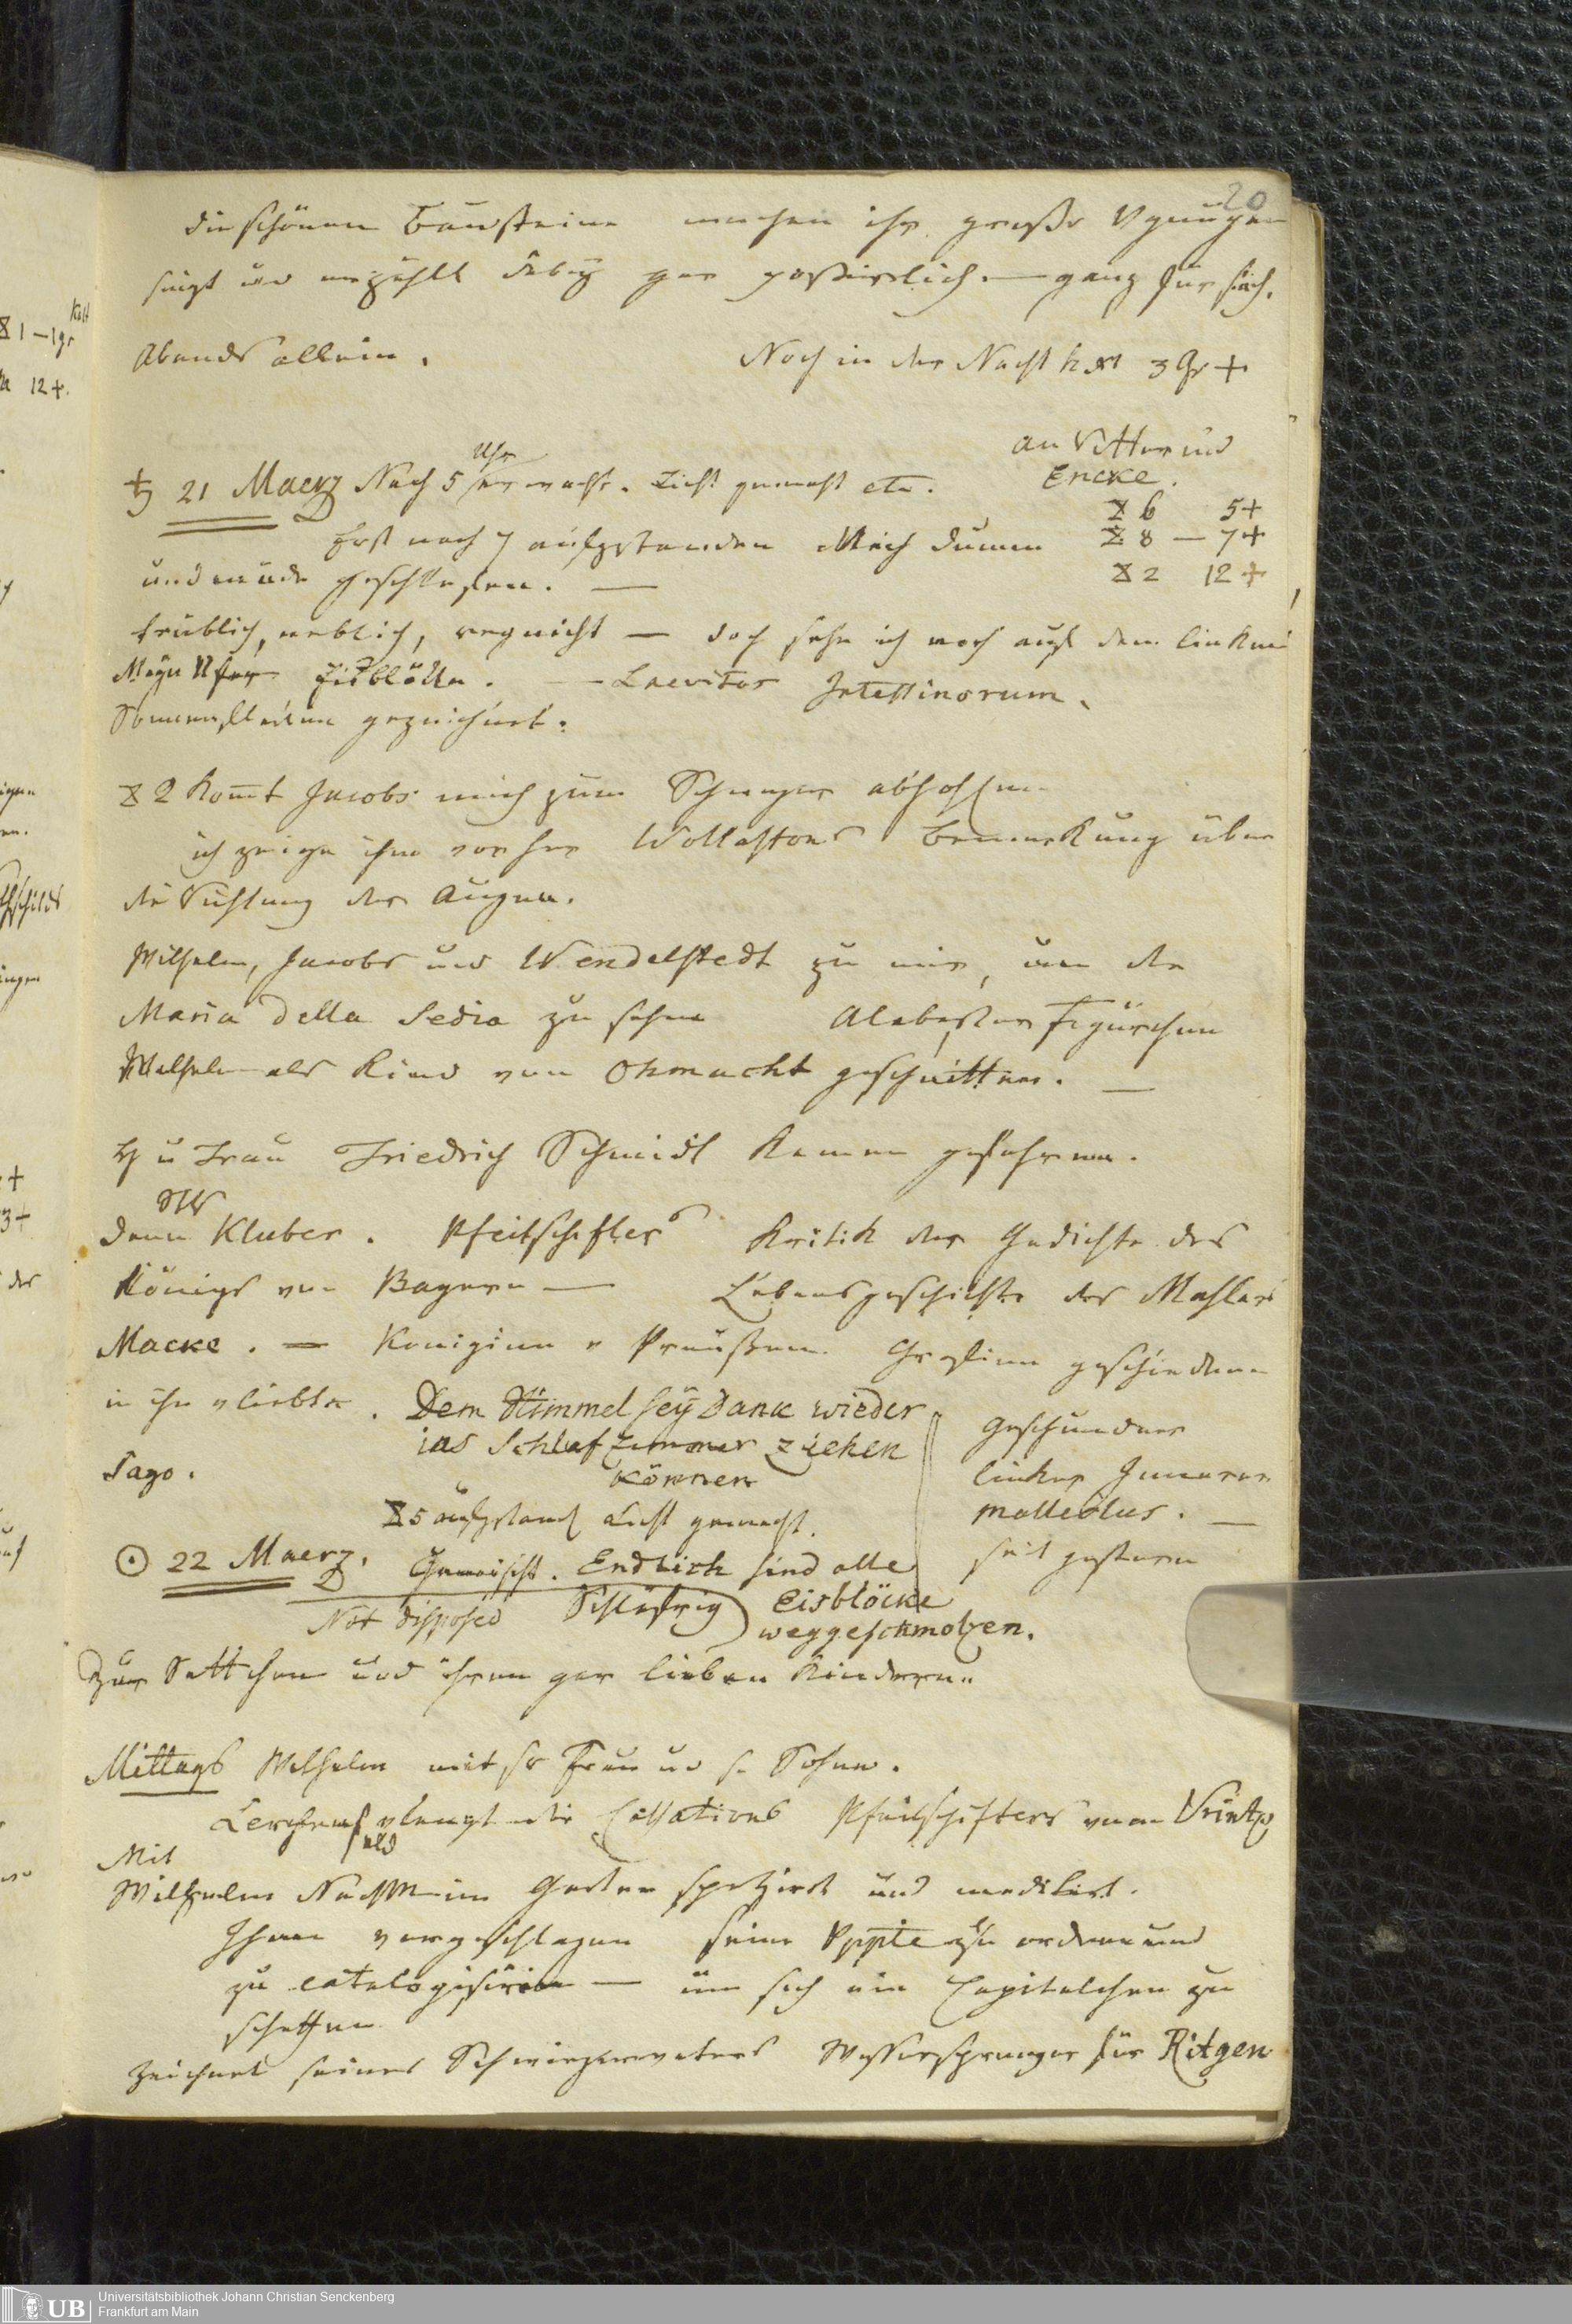 20
die schönen Bausteine machen ihr großes Vgnügen
singt und erzählt dabey gar possierlich — ganz für sich.
Abends allein.
Noch in der Nacht 3 Gr +
an Ritter und
Encke.
♄ 21 Maerz Nach 5 Uhr erwacht. Licht gemacht etc.
6 5+
Erst nach 7 aufgestanden Mich dumm
8 — 7+
und müde geschlafen. —
2 12+
trüblich, neblich, regnicht — doch sehe ich noch auf dem linken
Mayn Ufer Eisblöcke. — Laevitas Intestinorum.
Sonnenflecken gezeichnet.
2 komt Jacobs mich zum Schwager abhohlen
ich zeige ihm vorher Wollastons Bemerkung über
die Richtung der Augen.
Wilhelm, Jacobs und Wendelstedt zu mir, um die
Maria della Sedia zu sehen Alabaster Figürchen
Wilhelm als Kind von Ohmacht geschnitten. —
H u Frau Friedrich Schmidt kamen gefahren.
dann Kluber. Pfeilschifters Kritik der Gedichte des
Königs von Bayern — Lebensgeschichte des Mahlers
Macke. — Koniginn v Preußen. Gräfinn geschiedene
in ihn vliebte. Dem Himmel sey Dank wieder
ins Schlafzimmer ziehen
können
Geschundner
linker Innerer
malleolus. —
seit gestern
Sago.
5 aufgestand Licht gemacht.
☉ 22 Maerz. Gemeißt. Endlich sind alle
Eisblöcke
weggeschmolzen.
Not disposed Schläfrig
Zur Settchen und ihren gar lieben Kindern.
Mittags Wilhelm mit sr Frau und s. Sohne.
Lerchenfeld vlangt die Cessation Pfeilschifters von Vrintz
Mit
Wilhelm NachM im Garten spatzirt und meditirt.
Ihm vorgeschlagen seine Pppte zu ordnen und
zu catalogisiren — um sich ein Capitelchen zu
schaffen
Zeichnet seines Schwiegervaters Wassersprenger für Ritgen
UB
Universitätsbibliothek Johann Christian Senckenberg
Frankfurt am Main